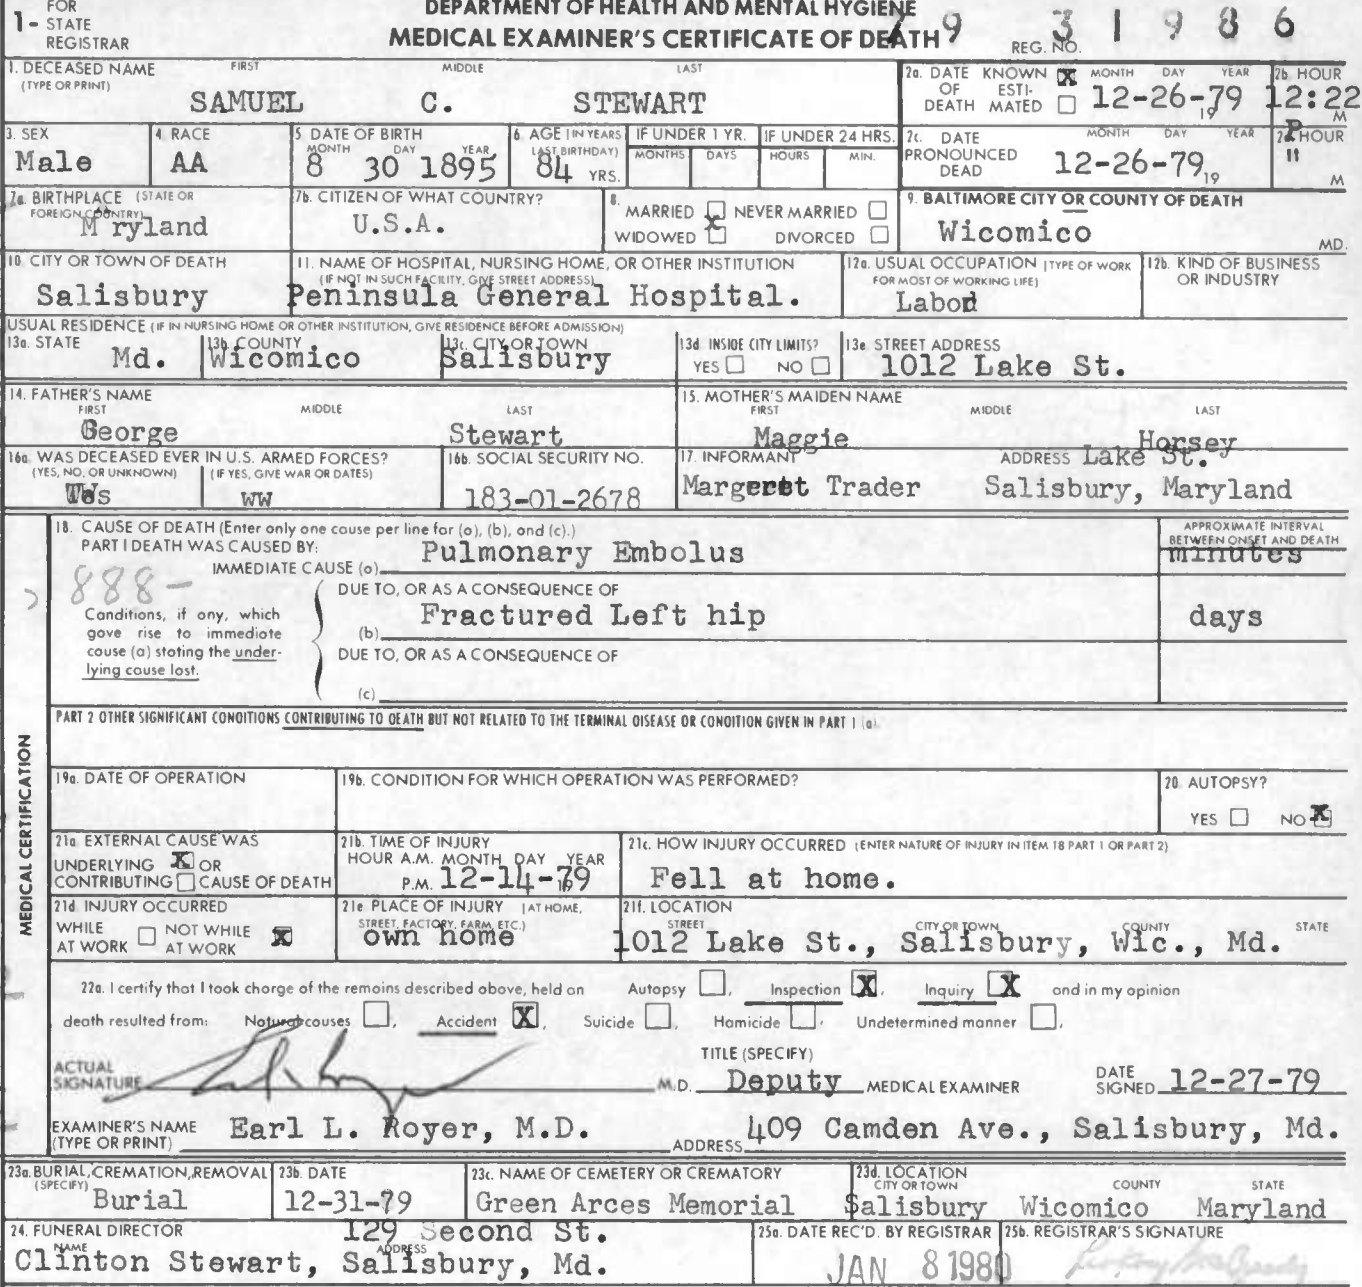 FOR
1- STATE
REGISTRAR
DEPARTMENT OF HEALTH AND MENTAL HYGIENE
MEDICAL EXAMINER'S CERTIFICATE OF DEATH
79 31986
REG. NO.
1. DECEASED NAME (TYPE OR PRINT) FIRST MIDDLE LAST
SAMUEL C. STEWART
2a. DATE OF DEATH KNOWN X ESTIMATED MONTH DAY YEAR
12-26-79 19
2b. HOUR
12:22 P M
3. SEX
Male
4. RACE
AA
5. DATE OF BIRTH MONTH DAY YEAR
8 30 1895
6. AGE (IN YEARS LAST BIRTHDAY)
84 YRS.
IF UNDER 1 YR. MONTHS DAYS
IF UNDER 24 HRS. HOURS MIN.
2c. DATE PRONOUNCED DEAD MONTH DAY YEAR
12-26-79 19
2d. HOUR
" M
7a. BIRTHPLACE (STATE OR FOREIGN COUNTRY)
Maryland
7b. CITIZEN OF WHAT COUNTRY?
U.S.A.
8. MARRIED NEVER MARRIED
WIDOWED X DIVORCED
9. BALTIMORE CITY OR COUNTY OF DEATH
Wicomico MD.
10. CITY OR TOWN OF DEATH
Salisbury
11. NAME OF HOSPITAL, NURSING HOME, OR OTHER INSTITUTION
(IF NOT IN SUCH FACILITY, GIVE STREET ADDRESS)
Peninsula General Hospital.
12a. USUAL OCCUPATION (TYPE OF WORK FOR MOST OF WORKING LIFE)
Labor
12b. KIND OF BUSINESS OR INDUSTRY
USUAL RESIDENCE (IF IN NURSING HOME OR OTHER INSTITUTION, GIVE RESIDENCE BEFORE ADMISSION)
13a. STATE
Md.
13b. COUNTY
Wicomico
13c. CITY OR TOWN
Salisbury
13d. INSIDE CITY LIMITS?
YES NO
13e. STREET ADDRESS
1012 Lake St.
14. FATHER'S NAME FIRST MIDDLE LAST
George Stewart
15. MOTHER'S MAIDEN NAME FIRST MIDDLE LAST
Maggie Horsey
16a. WAS DECEASED EVER IN U.S. ARMED FORCES?
(YES, NO, OR UNKNOWN) (IF YES, GIVE WAR OR DATES)
WW
16b. SOCIAL SECURITY NO.
183-01-2678
17. INFORMANT ADDRESS Lake St.
Trader Salisbury, Maryland
18. CAUSE OF DEATH (Enter only one cause per line for (a), (b), and (c).)
PART I DEATH WAS CAUSED BY:
APPROXIMATE INTERVAL BETWEEN ONSET AND DEATH
IMMEDIATE CAUSE (a) Pulmonary Embolus
minutes
888-
Conditions, if any, which
gave rise to immediate
cause (a) stating the under-
lying cause last.
DUE TO, OR AS A CONSEQUENCE OF
(b) Fractured Left hip
days
DUE TO, OR AS A CONSEQUENCE OF
(c)
PART 2 OTHER SIGNIFICANT CONDITIONS CONTRIBUTING TO DEATH BUT NOT RELATED TO THE TERMINAL DISEASE OR CONDITION GIVEN IN PART 1 (a)
MEDICAL CERTIFICATION
19a. DATE OF OPERATION
19b. CONDITION FOR WHICH OPERATION WAS PERFORMED?
20. AUTOPSY?
YES NO X
21a. EXTERNAL CAUSE WAS
UNDERLYING X OR
CONTRIBUTING CAUSE OF DEATH
21b. TIME OF INJURY
HOUR A.M. MONTH DAY YEAR
P.M. 12-14-79 19
21c. HOW INJURY OCCURRED (ENTER NATURE OF INJURY IN ITEM 18 PART 1 OR PART 2)
Fell at home.
21d. INJURY OCCURRED
WHILE AT WORK NOT WHILE AT WORK X
21e. PLACE OF INJURY (AT HOME, STREET, FACTORY, FARM, ETC.)
own home
21f. LOCATION STREET CITY OR TOWN COUNTY STATE
1012 Lake St., Salisbury, Wic., Md.
22a. I certify that I took charge of the remains described above, held an Autopsy , Inspection X, Inquiry X and in my opinion
death resulted from: Natural causes , Accident X, Suicide , Homicide , Undetermined manner .
ACTUAL SIGNATURE M.D.
TITLE (SPECIFY)
Deputy MEDICAL EXAMINER
DATE SIGNED 12-27-79
EXAMINER'S NAME (TYPE OR PRINT) Earl L. Royer, M.D.
ADDRESS 409 Camden Ave., Salisbury, Md.
23a. BURIAL, CREMATION, REMOVAL (SPECIFY)
Burial
23b. DATE
12-31-79
23c. NAME OF CEMETERY OR CREMATORY
Green Arces Memorial
23d. LOCATION CITY OR TOWN COUNTY STATE
Salisbury Wicomico Maryland
24. FUNERAL DIRECTOR 129 Second St.
NAME ADDRESS
Clinton Stewart, Salisbury, Md.
25a. DATE REC'D. BY REGISTRAR
JAN 8 1980
25b. REGISTRAR'S SIGNATURE